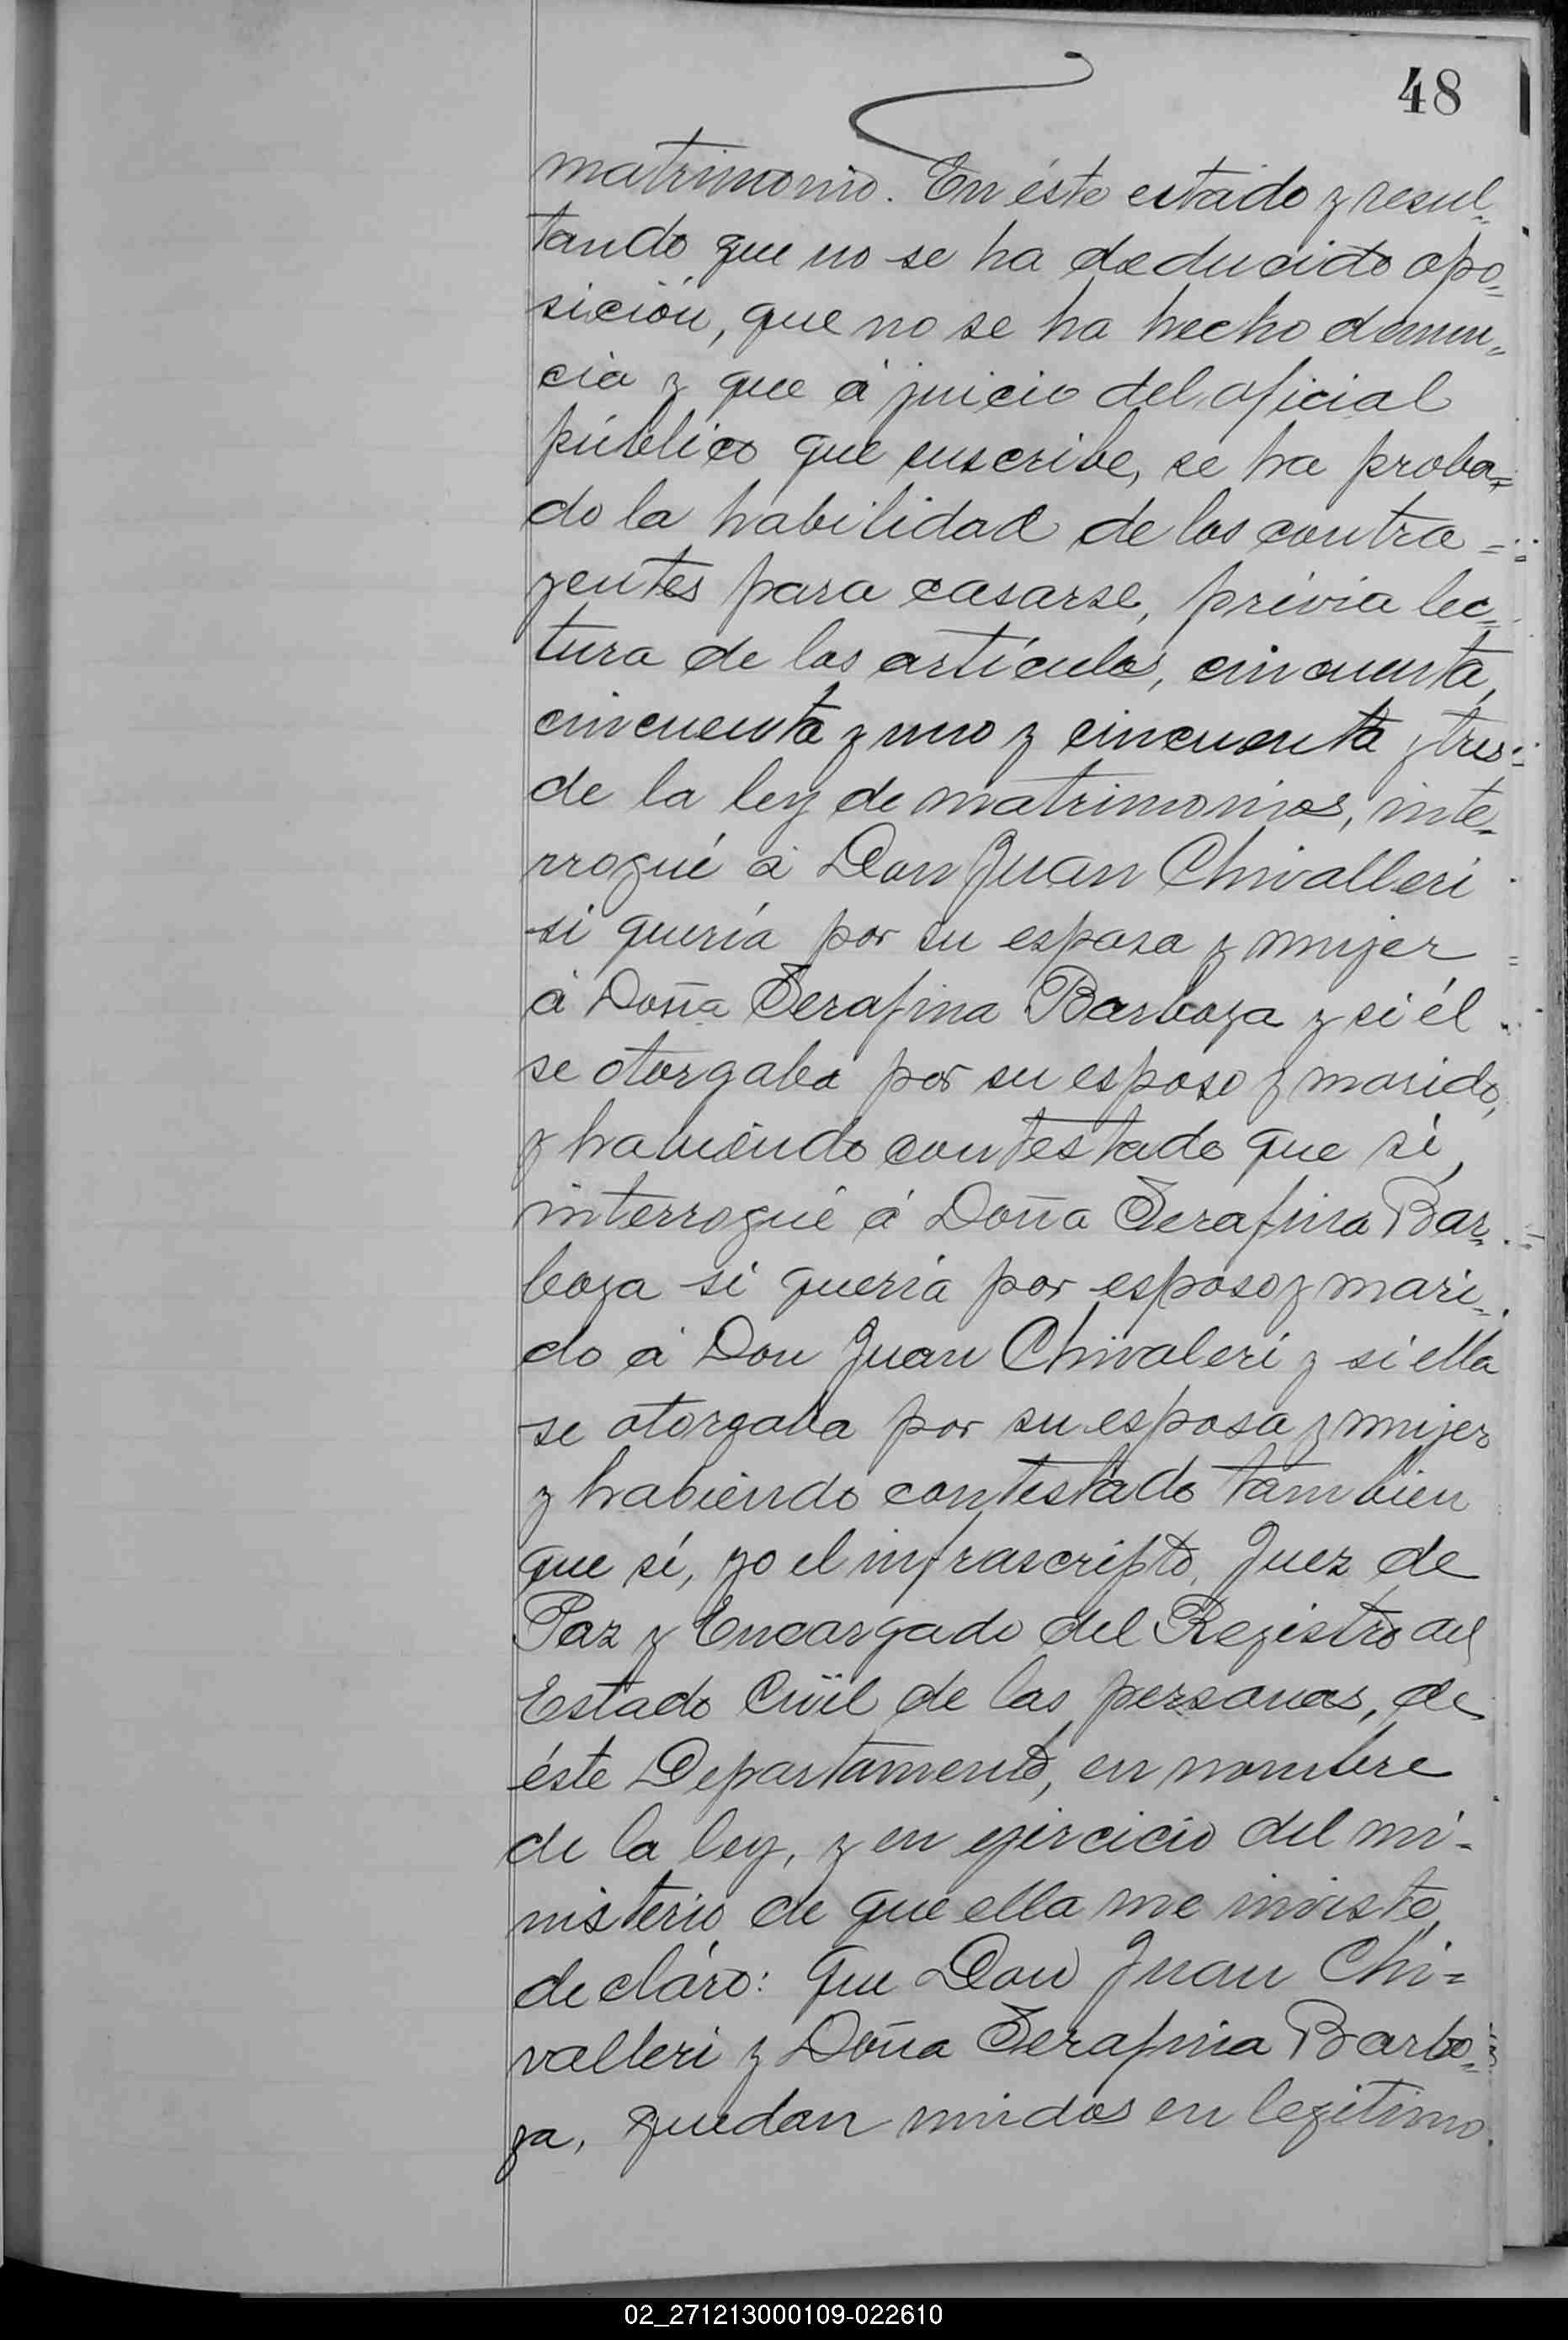 48
matrimonio. En éste estado y resul=
tando que no se ha deducido opo=
sición, que no se ha hecho denun=
cia y que á juicio del oficial
público que suscribe, se ha proba=
do la habilidad de los contra=
yentes para casarse, prévia lec=
tura de los artículos, cincuenta,
cincuenta y uno y cincuenta y tres
de la ley de matrimonios, inte=
rrogué á Don Juan Chivalleri
si quería por su esposa y mujer
á Doña Serafina Barboza y si él
se otorgaba por su esposo y marido,
y habiendo contestado que sí,
interrogué á Doña Serafina Bar=
boza si quería por esposo y mari=
do á Don Juan Chivaleri y si ella
se otorgaba por su esposa y mujer
y habiendo contestado tambien
que sí, yo el infrascripto, Juez de
Paz y Encargado del Registro del
Estado Civil de las personas, de
éste Departamento, en nombre
de la ley, y en ejercicio del mi-
nisterio de que ella me inviste,
declaro: Que Don Juan Chi=
valleri y Doña Serafina Barbo=
za, quedan unidos en legítimo
02_271213000109-022610